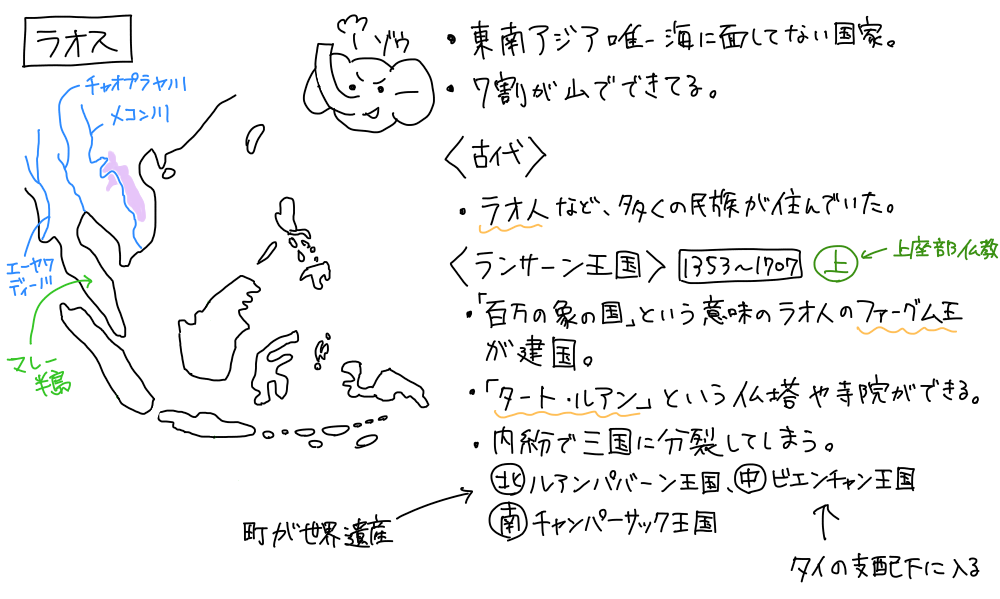 ラオス
ゾウ
チャオプラヤ川
メコン川
エーヤワ
ディー川
マレー
半島
・東南アジア唯一海に面してない国家。
・7割が山でできてる。
〈古代〉
・ラオ人など、多くの民族が住んでいた。
〈ランサーン王国〉 1353〜1707 上 ← 上座部仏教
・「百万の象の国」という意味のラオ人のファーグム王
が建国。
・「タート・ルアン」という仏塔や寺院ができる。
・内紛で三国に分裂してしまう。
北 ルアンパバーン王国、中 ビエンチャン王国
南 チャンパーサック王国
町が世界遺産
タイの支配下に入る